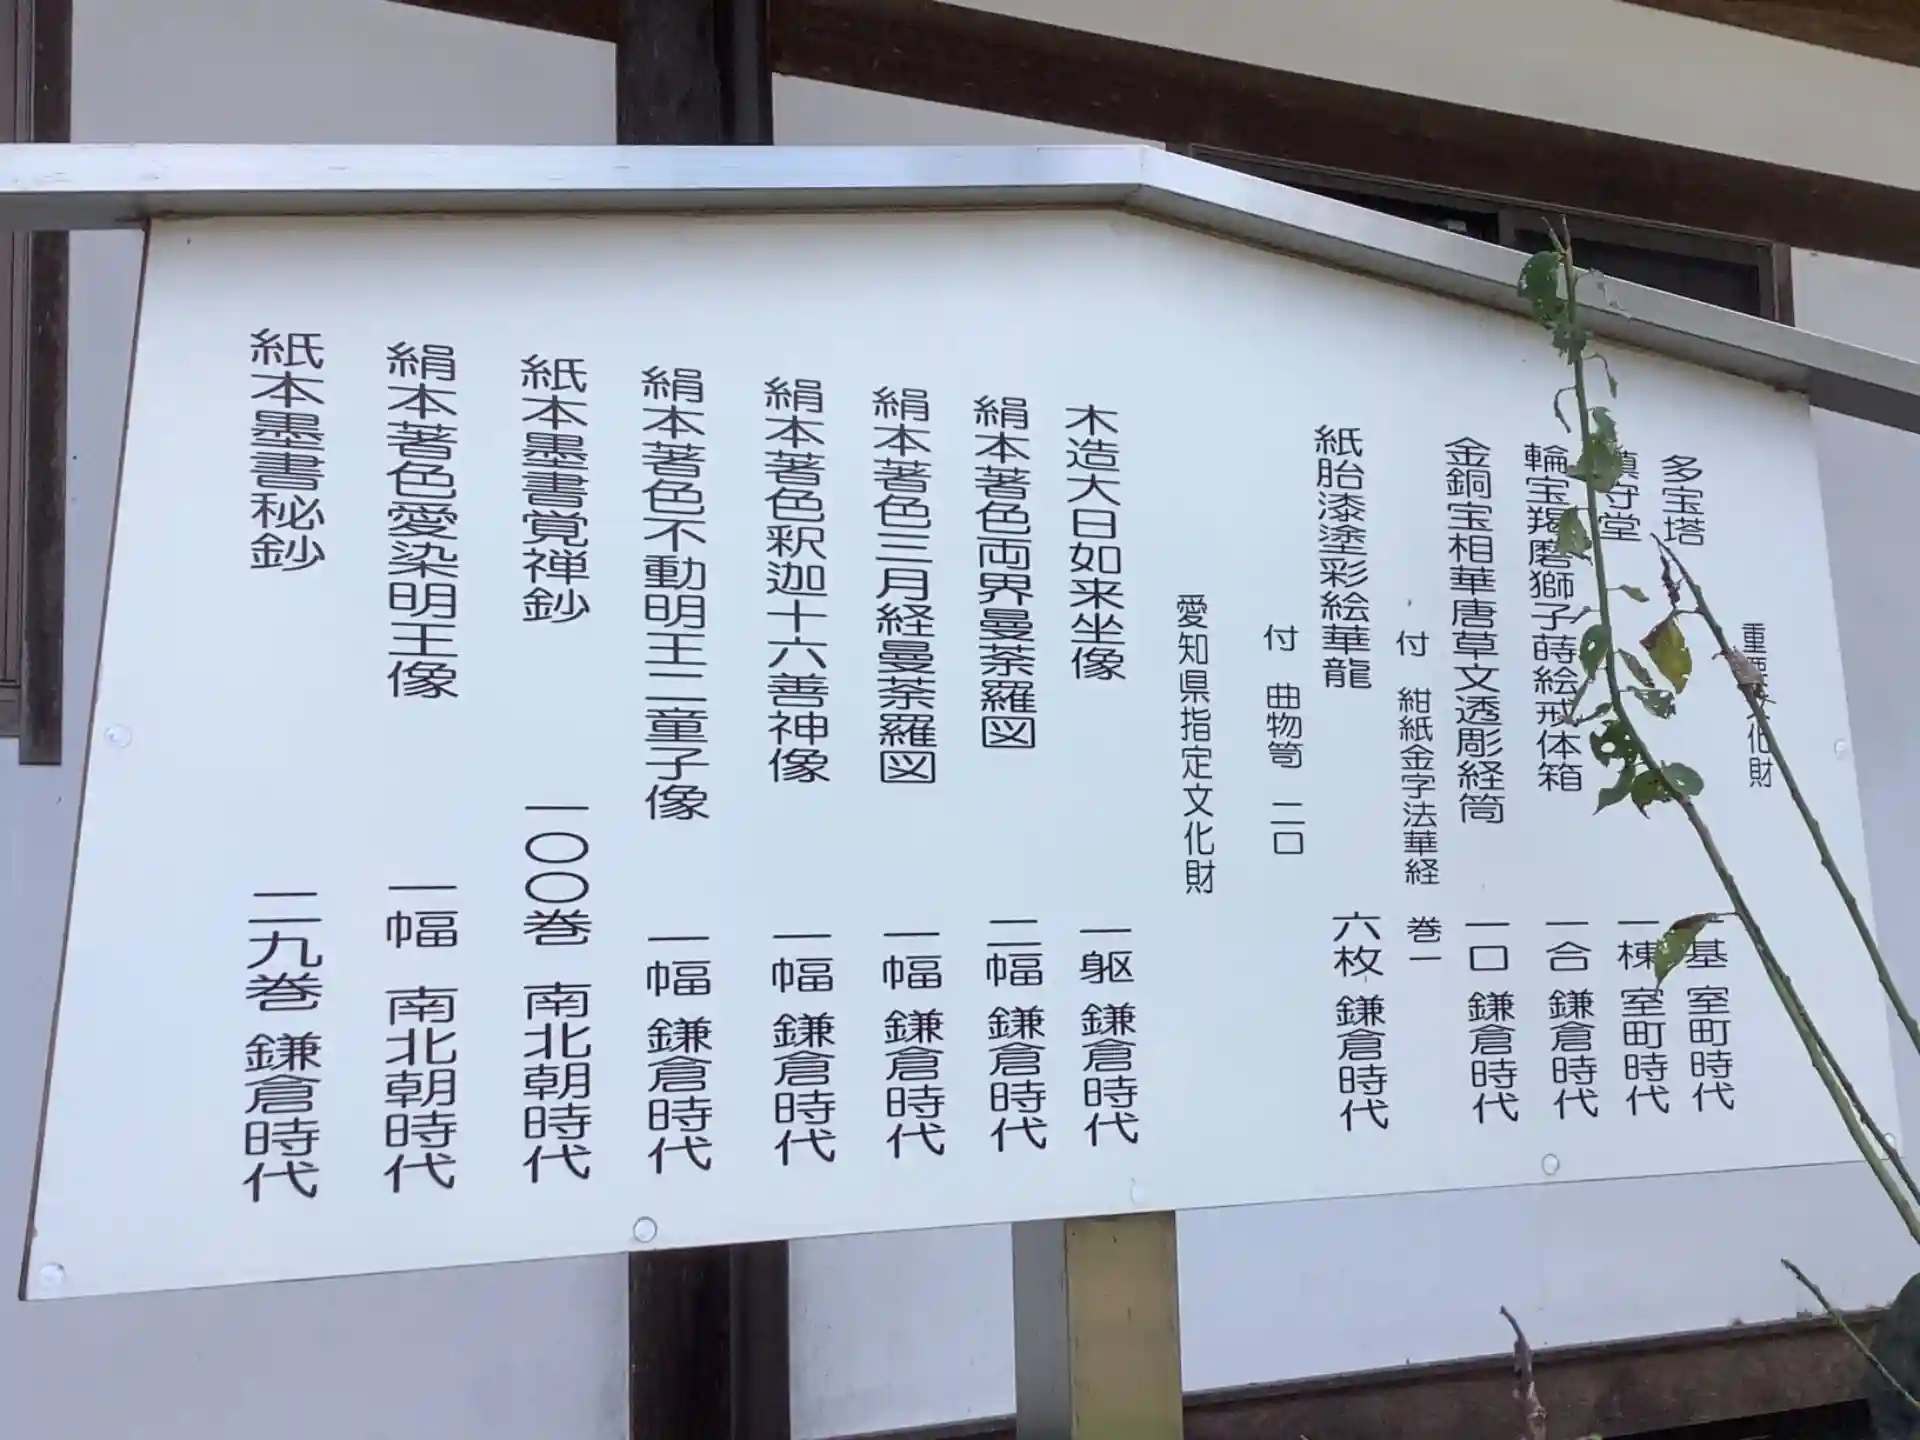 重要文化財
多宝塔 一基 室町時代
鎮守堂 一棟 室町時代
輪宝羯磨獅子蒔絵戒体箱 一合 鎌倉時代
金銅宝相華唐草文透彫経筒 一口 鎌倉時代
付 紺紙金字法華経 巻一
紙胎漆塗彩絵華籠 六枚 鎌倉時代
付 曲物笥 二口
愛知県指定文化財
木造大日如来坐像 一躯 鎌倉時代
絹本著色両界曼荼羅図 二幅 鎌倉時代
絹本著色三月経曼荼羅図 一幅 鎌倉時代
絹本著色釈迦十六善神像 一幅 鎌倉時代
絹本著色不動明王二童子像 一幅 鎌倉時代
紙本墨書覚禅鈔 一〇〇巻 南北朝時代
絹本著色愛染明王像 一幅 南北朝時代
紙本墨書秘鈔 二九巻 鎌倉時代